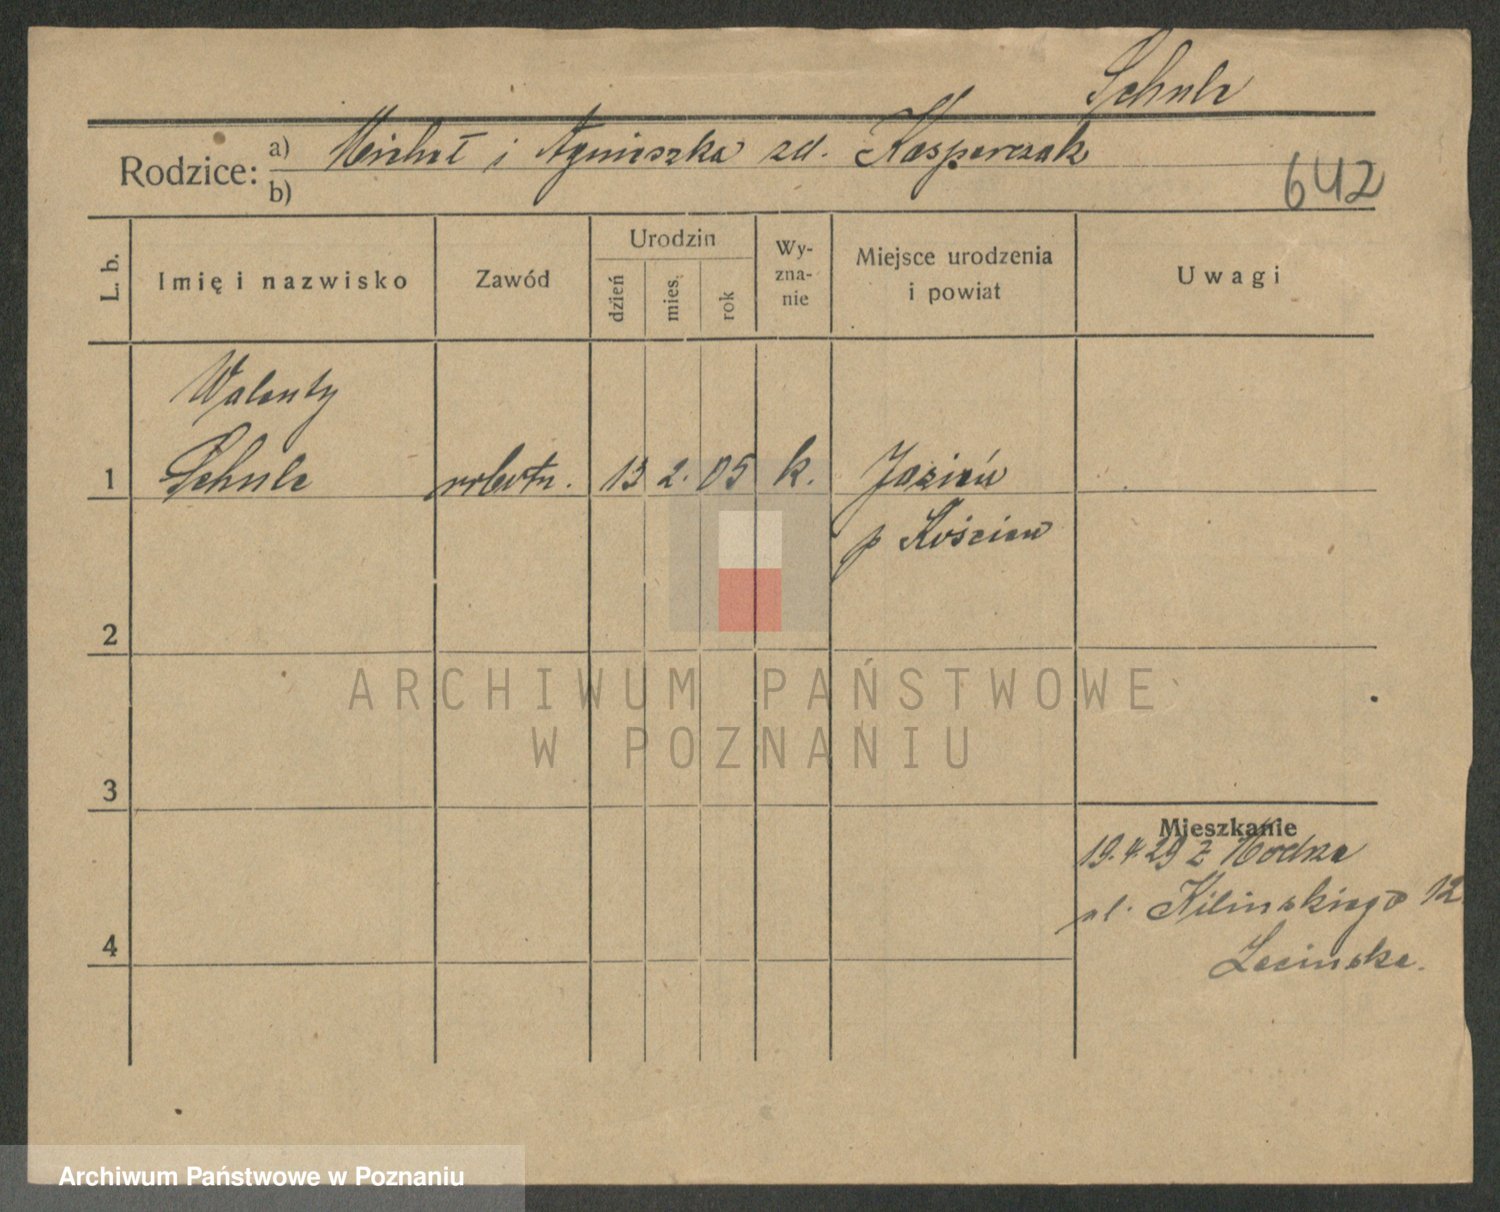 Schulz
Rodzice: a) Michał i Agnieszka zd. Kasperczak
b)
642
L. b.
Imię i nazwisko
Zawód
Urodzin
dzień
mies.
rok
Wy-
zna-
nie
Miejsce urodzenia
i powiat
Uwagi
Walenty
1 Schulz robotn. 13 2. 05 k. Jasień
p Kościan
2
3
4
Mieszkanie
19.4.29 z
ul. Kilińskiego 12
ARCHIWUM PAŃSTWOWE
W POZNANIU
Archiwum Państwowe w Poznaniu